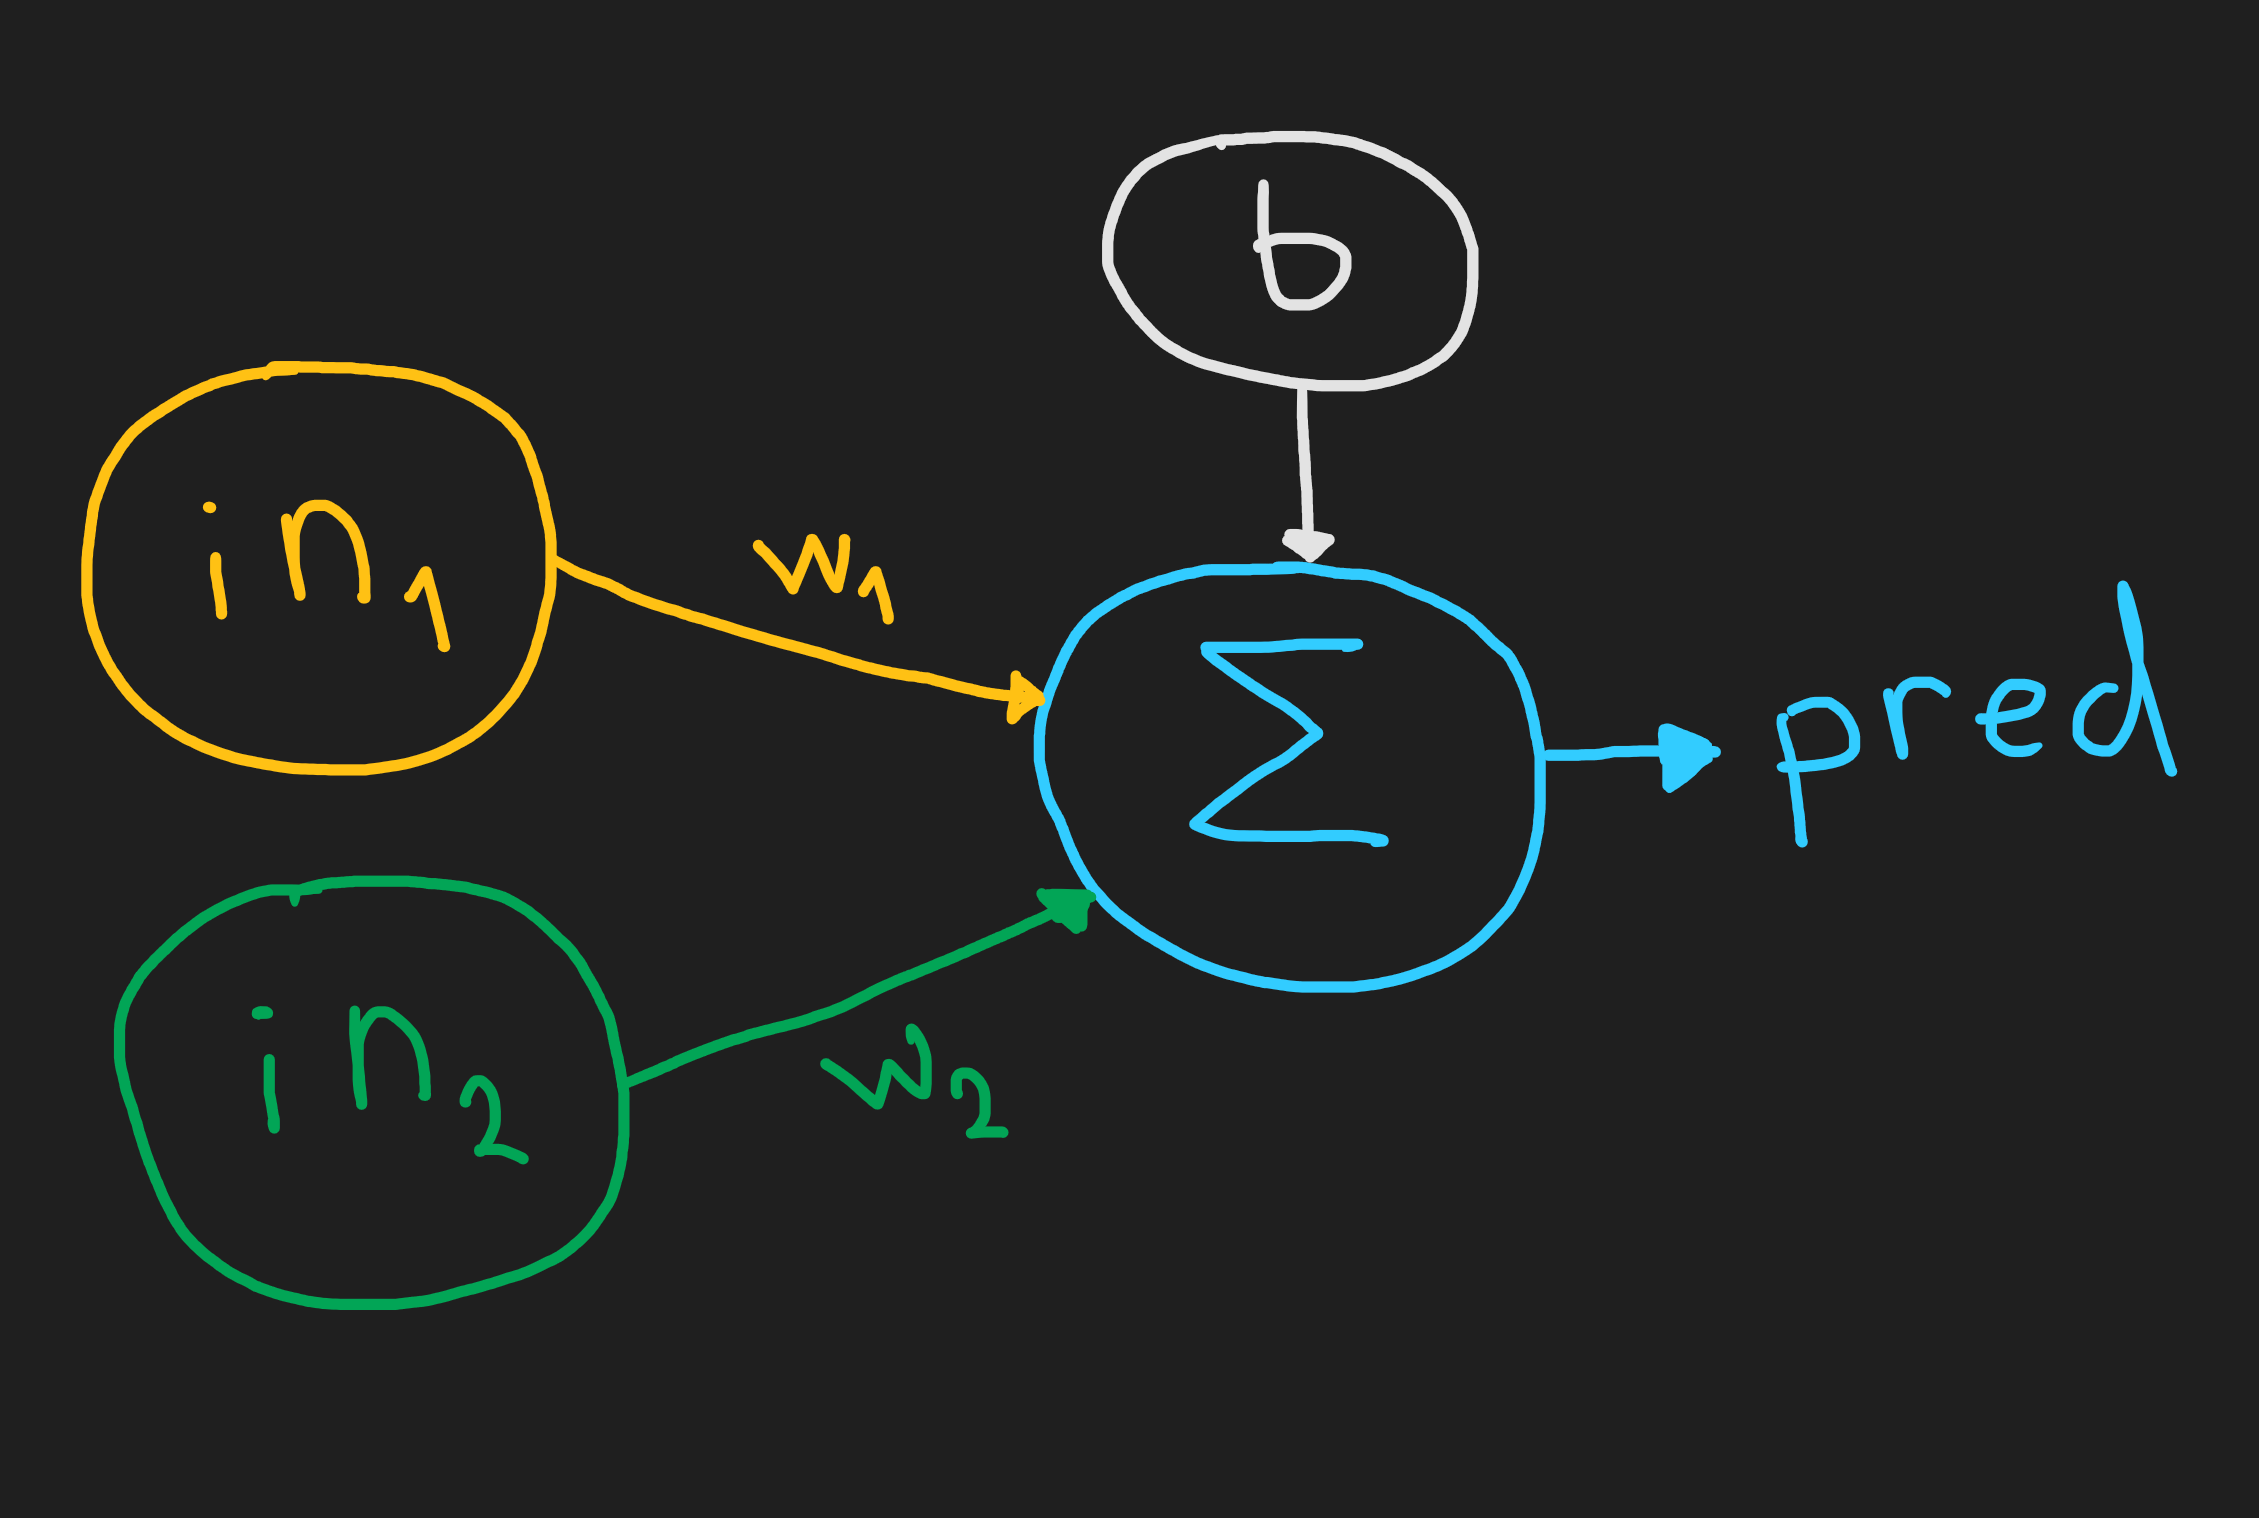 b
in₁
w₁
Σ
pred
in₂
w₂